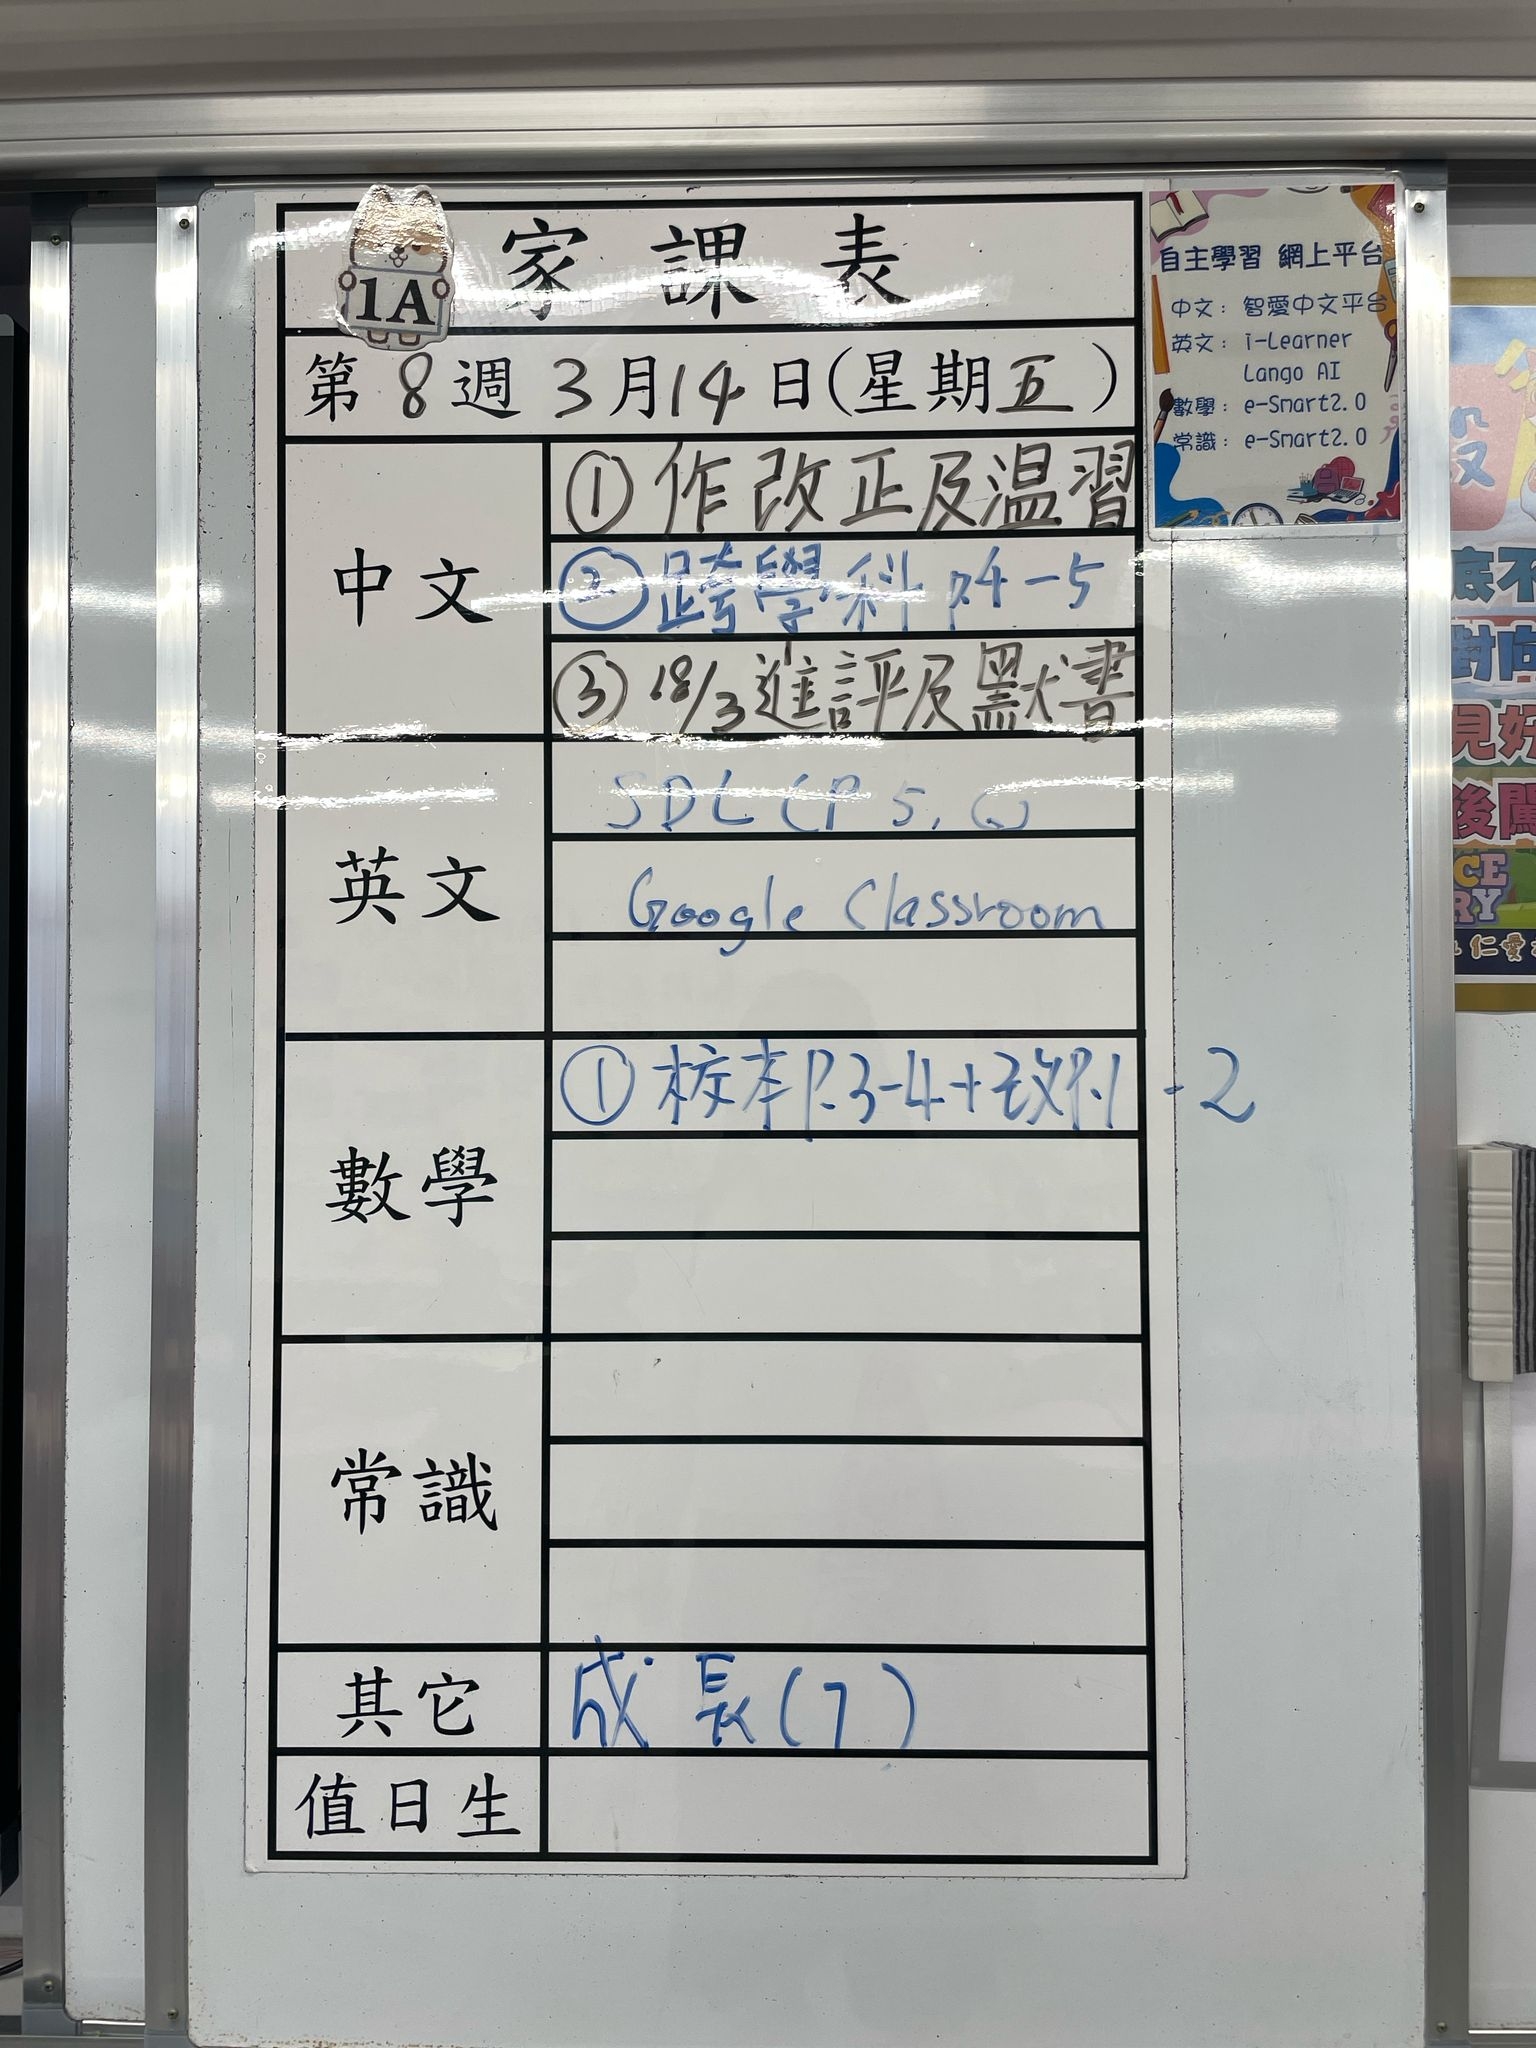 家課表
1A
第8週3月14日(星期五)
中文
①作改正及温習
②跨學科p.4-5
③18/3進評及默書
英文
SDL (P 5, 6)
Google Classroom
數學
①校本P.3-4+改P.1-2
常識
其它
成長(7)
值日生
自主學習 網上平台
中文: 智愛中文平台
英文: i-Learner
Lango AI
數學: e-Smart2.0
常識: e-Smart2.0
設
底不
對向
見好
後闖
CE
RY
仁愛